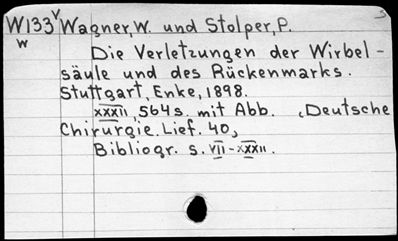 W133 Wagner, W. und Stolper, P.
W
Die Verletzungen der Wirbel-
säule und des Rückenmarks.
Stuttgart, Enke, 1898.
XXXII, 564s. mit Abb. (Deutsche
Chirurgie. Lief. 40)
Bibliogr. s. VII-XXXII.